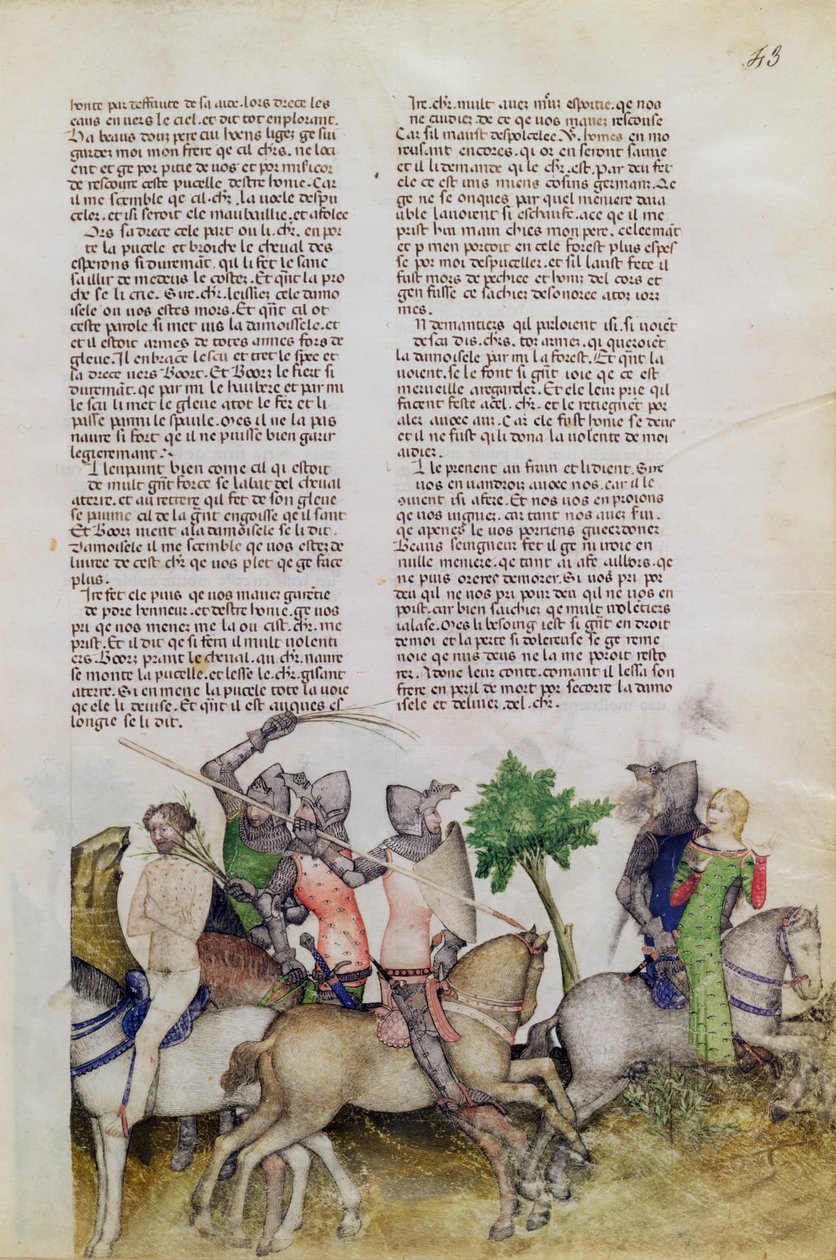 43
honte par deffaute de sa aide. lors drece les
eaus en uers le ciel. et dit tot en plorant.
Ha beaus douz pere cui hoens liges ge sui
gardez moi mon frere qe cil chrs. ne loci
ent et ge por pitie de uos et por misicor
de rescoure ceste pucelle destre honie. Car
il me scemble qe cil. chr. la uoele despu
celer. et isi seroit ele maubaillie. et afolee
Ors sa drece cele part ou li. chr. en por
te la pucele et broiche le cheual des
esperons si duremāt. qil li fet le sanc
saillir de medeus le costez. Et qn̄t la pro
che se li crie. Sire. chr. leissiez cele damo
isele ou uos estes mors. Et qn̄t cil ot
ceste parole si met ius la damoisele. et
et il estoit armes de totes armes fors de
gleue. Il enbrace lescu et tret le spee et
sa drece uers Boort. Et Boorz le fiert si
duremāt. qe par mi le hauberc et par mi
le scu li met le gleue atot le fer et li
passe parmi le spaule. Mes il ne la pas
naure si fort qe il ne puisse bien garir
legierement
Il lenpaint bien come cil qi estoit
de mult gn̄t force se labat del cheual
aterre. et au retrere qil fet de son gleue
se paume cil de la gn̄t engoisse qe il sant
Et Boorz uient ala damoisele se li dit.
Damoisele il me scemble qe uos estez de
liuree de cest chr qe uos plet qe ge face
plus.
Ire fet ele puis qe uos mauez garētie
de pdre henneur. et destre honie. ge uos
pri qe uos menez me la ou cist. chr. me
prist. Et il dit qe si fera il mult uolenti
ers. Boorz prant le cheual. au. chr. naure
se monte la pucelle. et lesse le. chr. gisant
aterre. Si en mene la pucele tote la uoie
qe ele li deuise. Et qn̄t il est auqes es
longie se li dit.
Ire. chr. mult auez esportie. qe nos
ne cuidiez de ce qe uos mauez rescouse
Car sil maust despolcelee. homes en mo
reusant encores. qi or en seront sauue
et il li demande qi le chr. est. par deu fet
ele ce est uns miens cosins germain. Qe
ge ne se onqes par quel meniere daia
uble lauoient si eschaufe. ace qe il me
prist hui main chies mon pere. celeemāt
et p men portoit en cele forest plus espes
se por moi despuceller. et sil laust fete il
fust mors de pechiee et honiz del cors et
gen fusse ce sachiez desonoree atoz iorz
mes.
N demantiers qil parloient isi. si uoiēt
de sci dis. chrs. toz armez. qi queroiēt
la damoisele par mi la forest. Et qn̄t la
uoient. se le font si gn̄t ioie qe ce est
merueille aregarder. Et ele leur prie qil
facent feste acel. chr. et le retiegnēt por
aler auoec aus. Car ele fust honie se deus
et il ne fust qi li dona la uolente de moi
aidier.
Il le prenent au frain et li dient. Sire
uos en uandroiz auoec nos. car il le
couient isi afere. Et nos uos en proions
qe uos uigniez. car tant nos auez serui.
qe apenes le uos porriens gueerdoner
Beaus seingneur fet il ge ni iroie en
nulle meniere. qe tant ai afe aillors. qe
ne puis oreres demorer. Si uos pri por
deu qil ne uos poist pour deu qil ne uos en
poist. car bien saichiez qe mult uolētiers
ialase. Mes li besoing iest si gn̄t en droit
demoi et la perte si dolereuse se ge reme
noie qe nus deus ne la me poroit resto
rer. Adonc leur conte. comant il lessa son
frere en peril de mort por secorre la damo
isele et deliurer. del. chr.